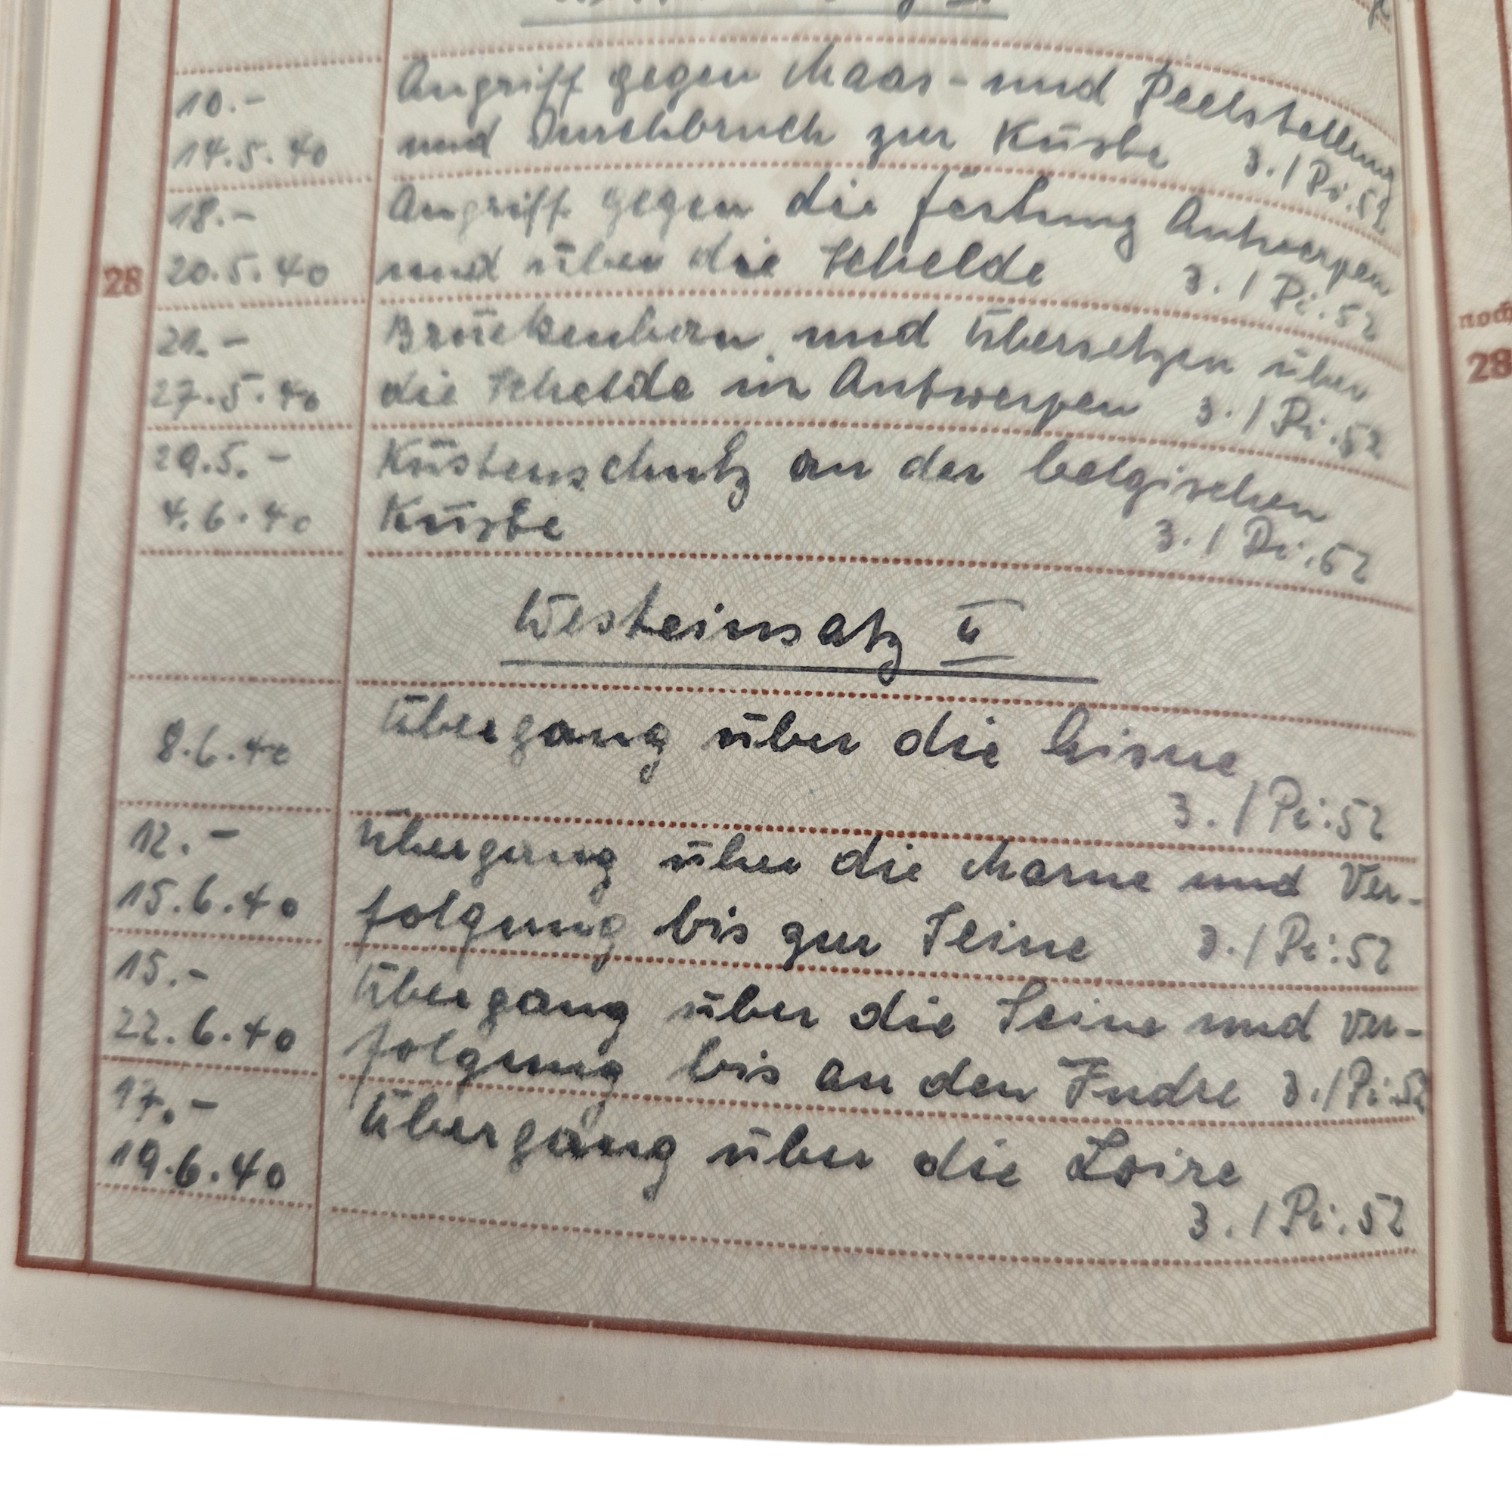 10.- Angriff gegen Maas- und Peelstellung
14.5.40 und Durchbruch zur Küste 3./Pi.52
18.- Angriff gegen die Festung Antwerpen
28 20.5.40 und über die Schelde 3./Pi.52
21.- Brückenbau und Übersetzen über
27.5.40 die Schelde in Antwerpen 3./Pi.52
29.5.- Küstenschutz an der belgischen
4.6.40 Küste 3./Pi.52
Westeinsatz II
8.6.40 Übergang über die Aisne
3./Pi:52
12.- Übergang über die Marne und Ver-
15.6.40 folgung bis zur Seine 3./Pi:52
15.- Übergang über die Seine und Ver-
22.6.40 folgung bis an den Indre 3./Pi:52
17.- Übergang über die Loire
19.6.40
3./Pi:52
noch
28